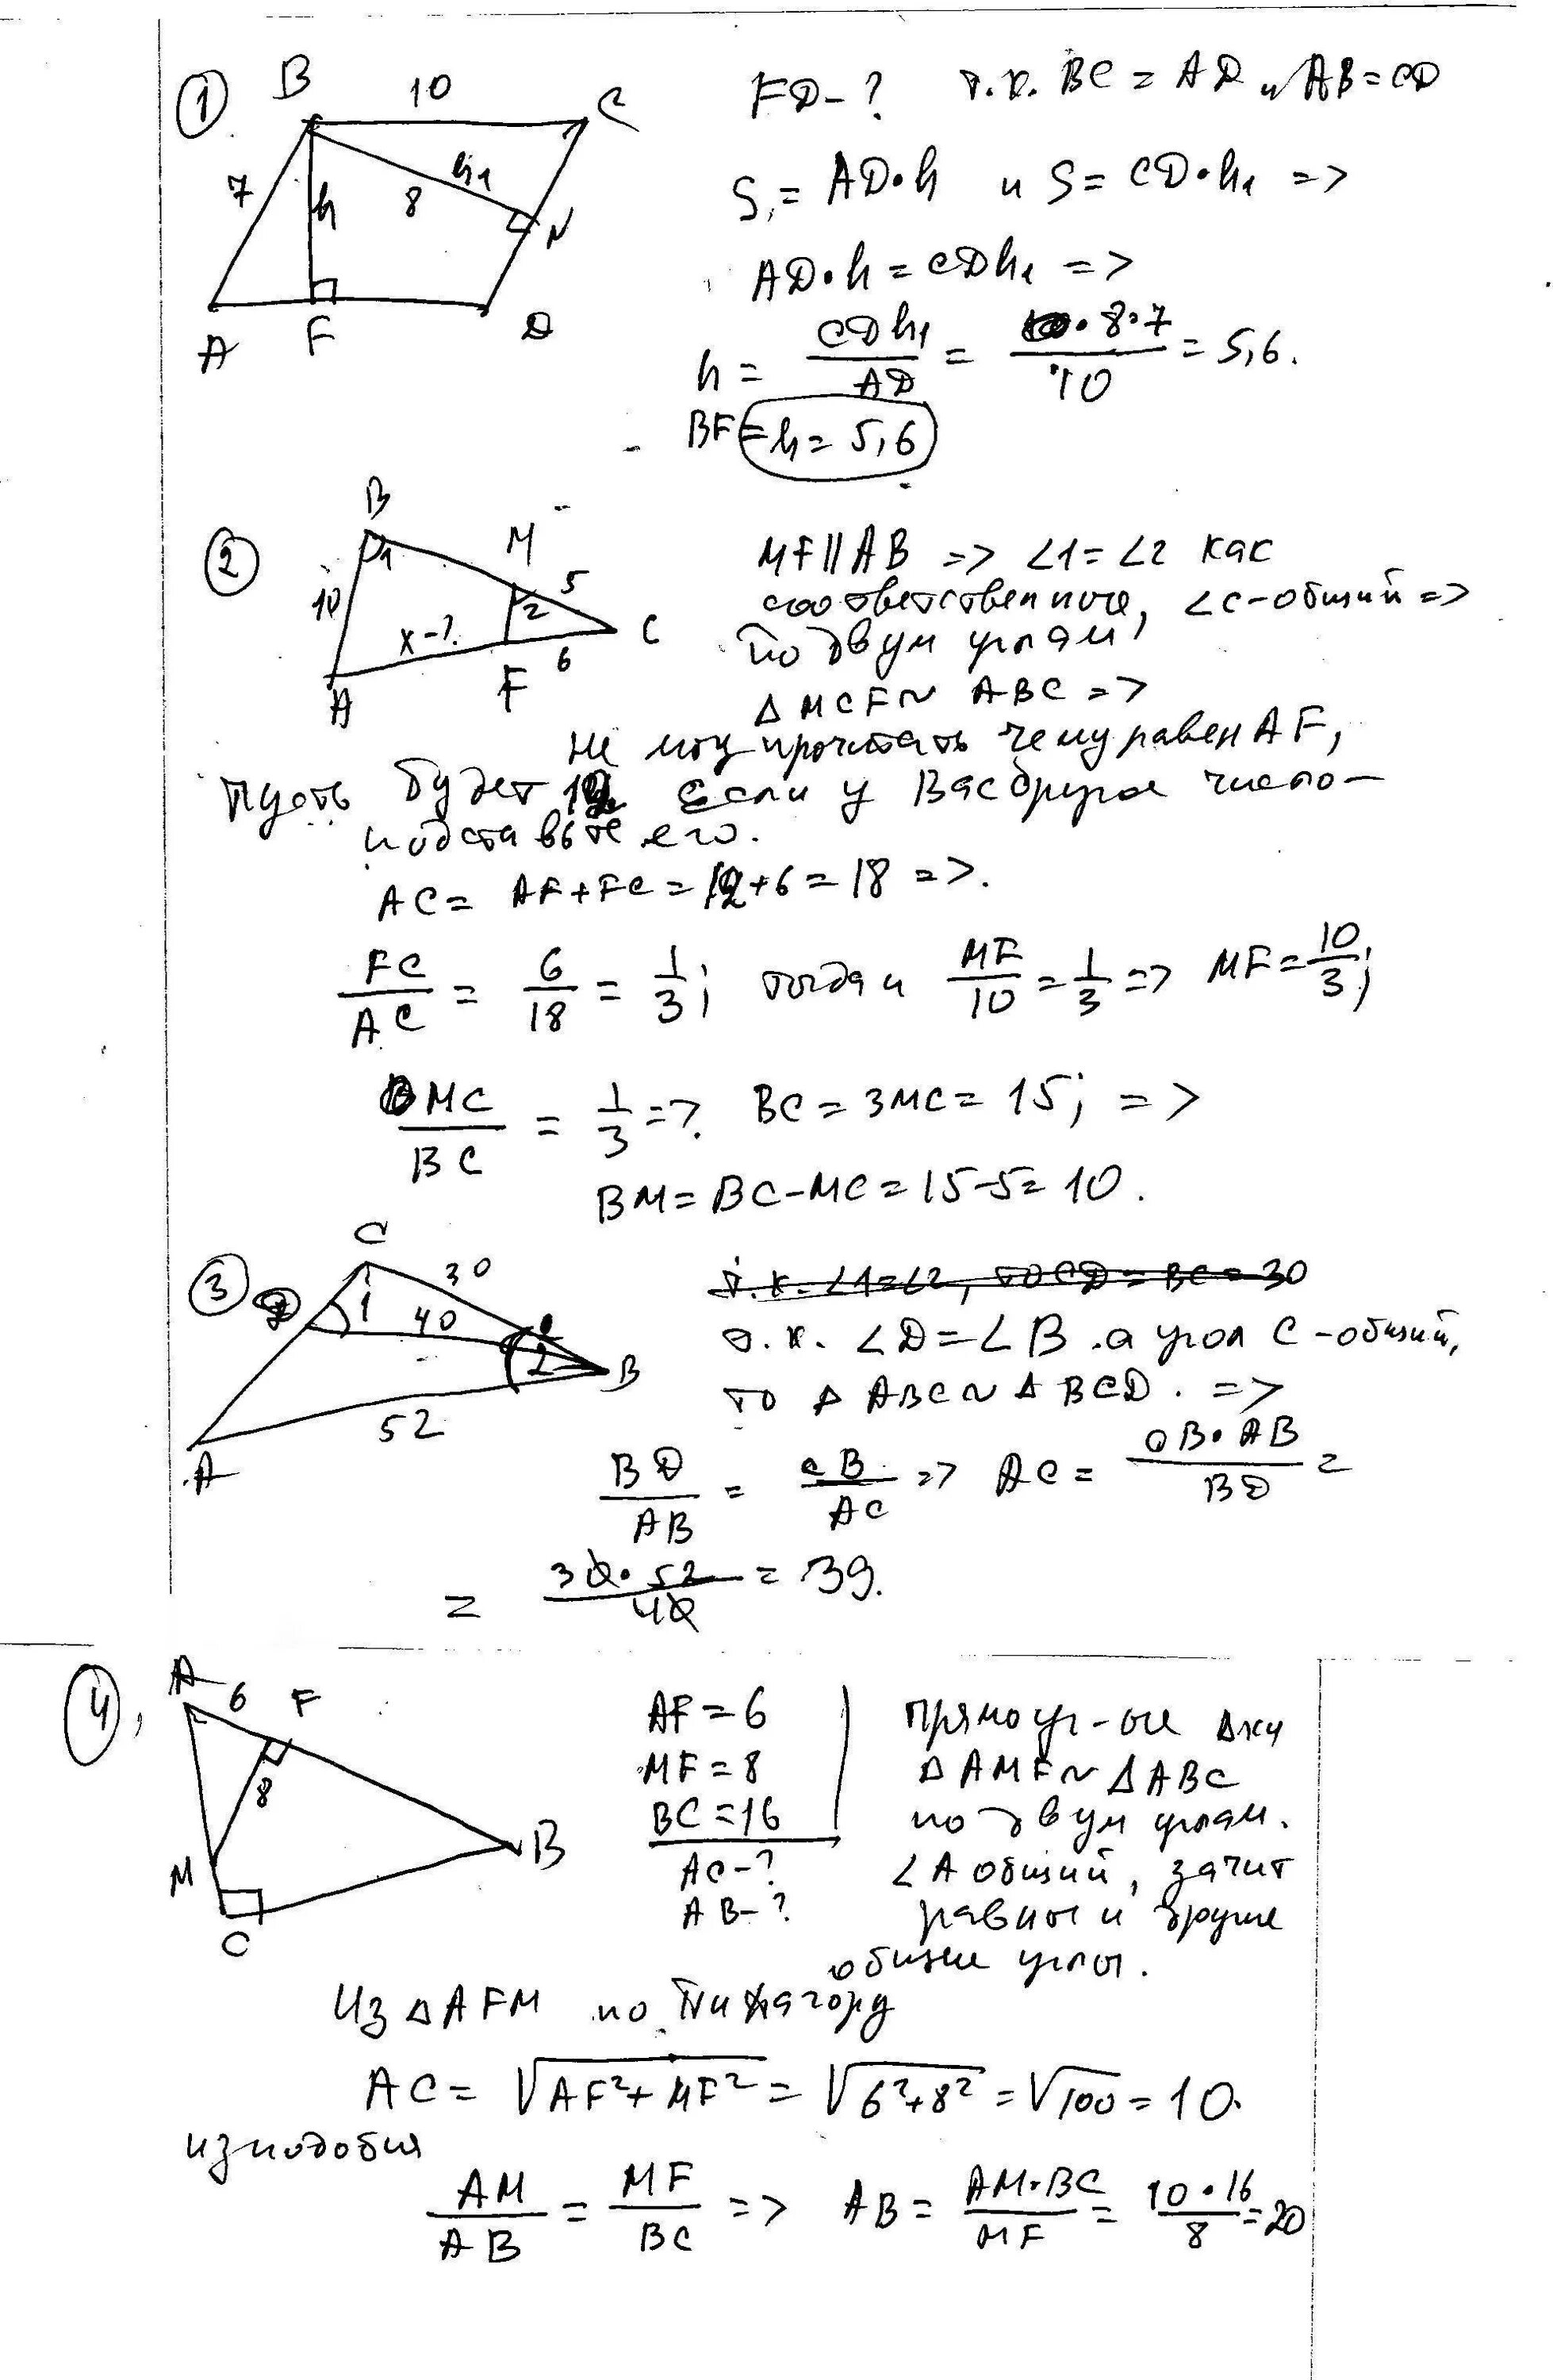 1
B 10 C
7 h 8 h₁ N
A F D
FD - ? т.к. BC = AD и AB = CD
S₁ = AD·h и S = CD·h₁ =>
AD·h = CDh₁ =>
h = CDh₁/AD = ·8·7/10 = 5,6.
BF = h = 5,6
2
B M
1 5
10 2
x-? C
A F 6
MF || AB => ∠1 = ∠2 как
соответственные, ∠C - общий =>
по двум углам
Δ MCF ~ ABC =>
Не могу прочитать чему равен AF,
пусть будет 12 Если у Вас другое число -
подставьте его.
AC = AF + FC = 12 + 6 = 18 =>.
FC/AC = 6/18 = 1/3; тогда и MF/10 = 1/3 => MF = 10/3;
MC/BC = 1/3 =>. BC = 3MC = 15; =>
BM = BC - MC = 15 - 5 = 10.
3
C 30
D 1 40
2 B
52
A
т.к. ∠1=∠2, то CD = BC = 30
т.к. ∠D = ∠B .а угол C - общий,
то Δ ABC ~ Δ BCD. =>
BD/AB = CB/AC => AC = CB·AB/BD =
= 30·52/40 = 39.
4,
A 6 F
8
M B
C
AF = 6
MF = 8
BC = 16
AC - ?
AB - ?
Прямоуг-ые Δки
Δ AMF ~ Δ ABC
по двум углам.
∠A общий, зачит
равны и другие
общие углы.
Из Δ AFM по Пифагору
AC = √AF² + MF² = √6² + 8² = √100 = 10.
из подобия
AM/AB = MF/BC => AB = AM·BC/MF = 10·16/8 = 20